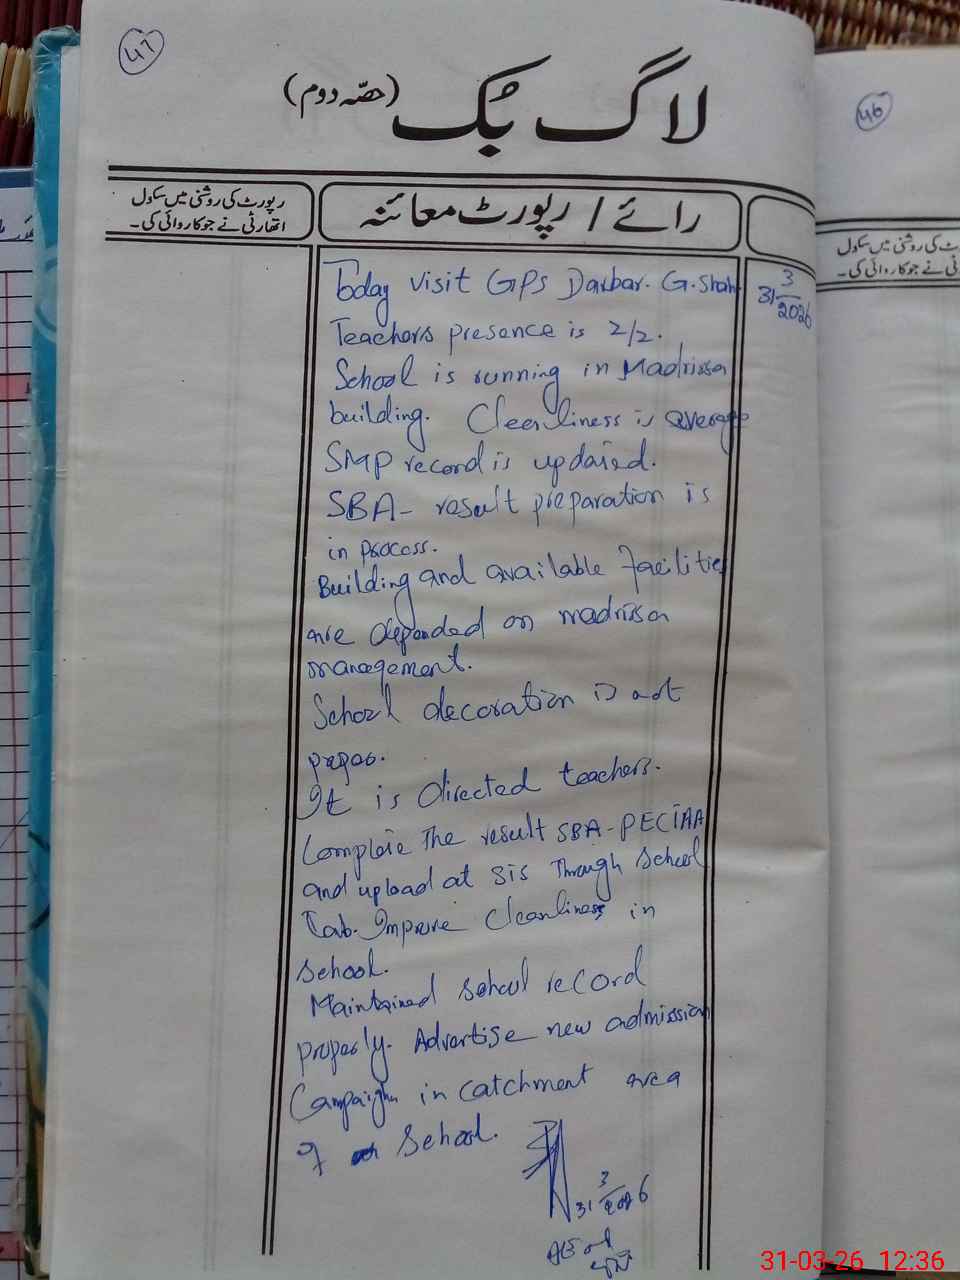 47
لاگ بُک (حصّہ دوم)
رپورٹ کی روشنی میں سکول
اتھارٹی نے جو کاروائی کی۔
رائے / رپورٹ معائنہ
Today visit GPS Darbar. G. Shah
31 3/2026
Teachers presence is 2/2.
School is running in Madrissa
building. Cleanliness is average
SMP record is updated.
SBA- result preparation is
in process.
Building and available facilities
are depended on madrissa
management.
School decoration is not
It is directed teachers.
Complete The result SBA-PECTAA
and upload at SIS Through School
Tab. Improve Cleanliness in
School.
Maintained school record
properly. Advertise new admission
Campaighn in catchment area
of School.
31 3/2026
46
رپورٹ کی روشنی میں سکول
نے جو کاروائی کی۔
31-03-26 12:36